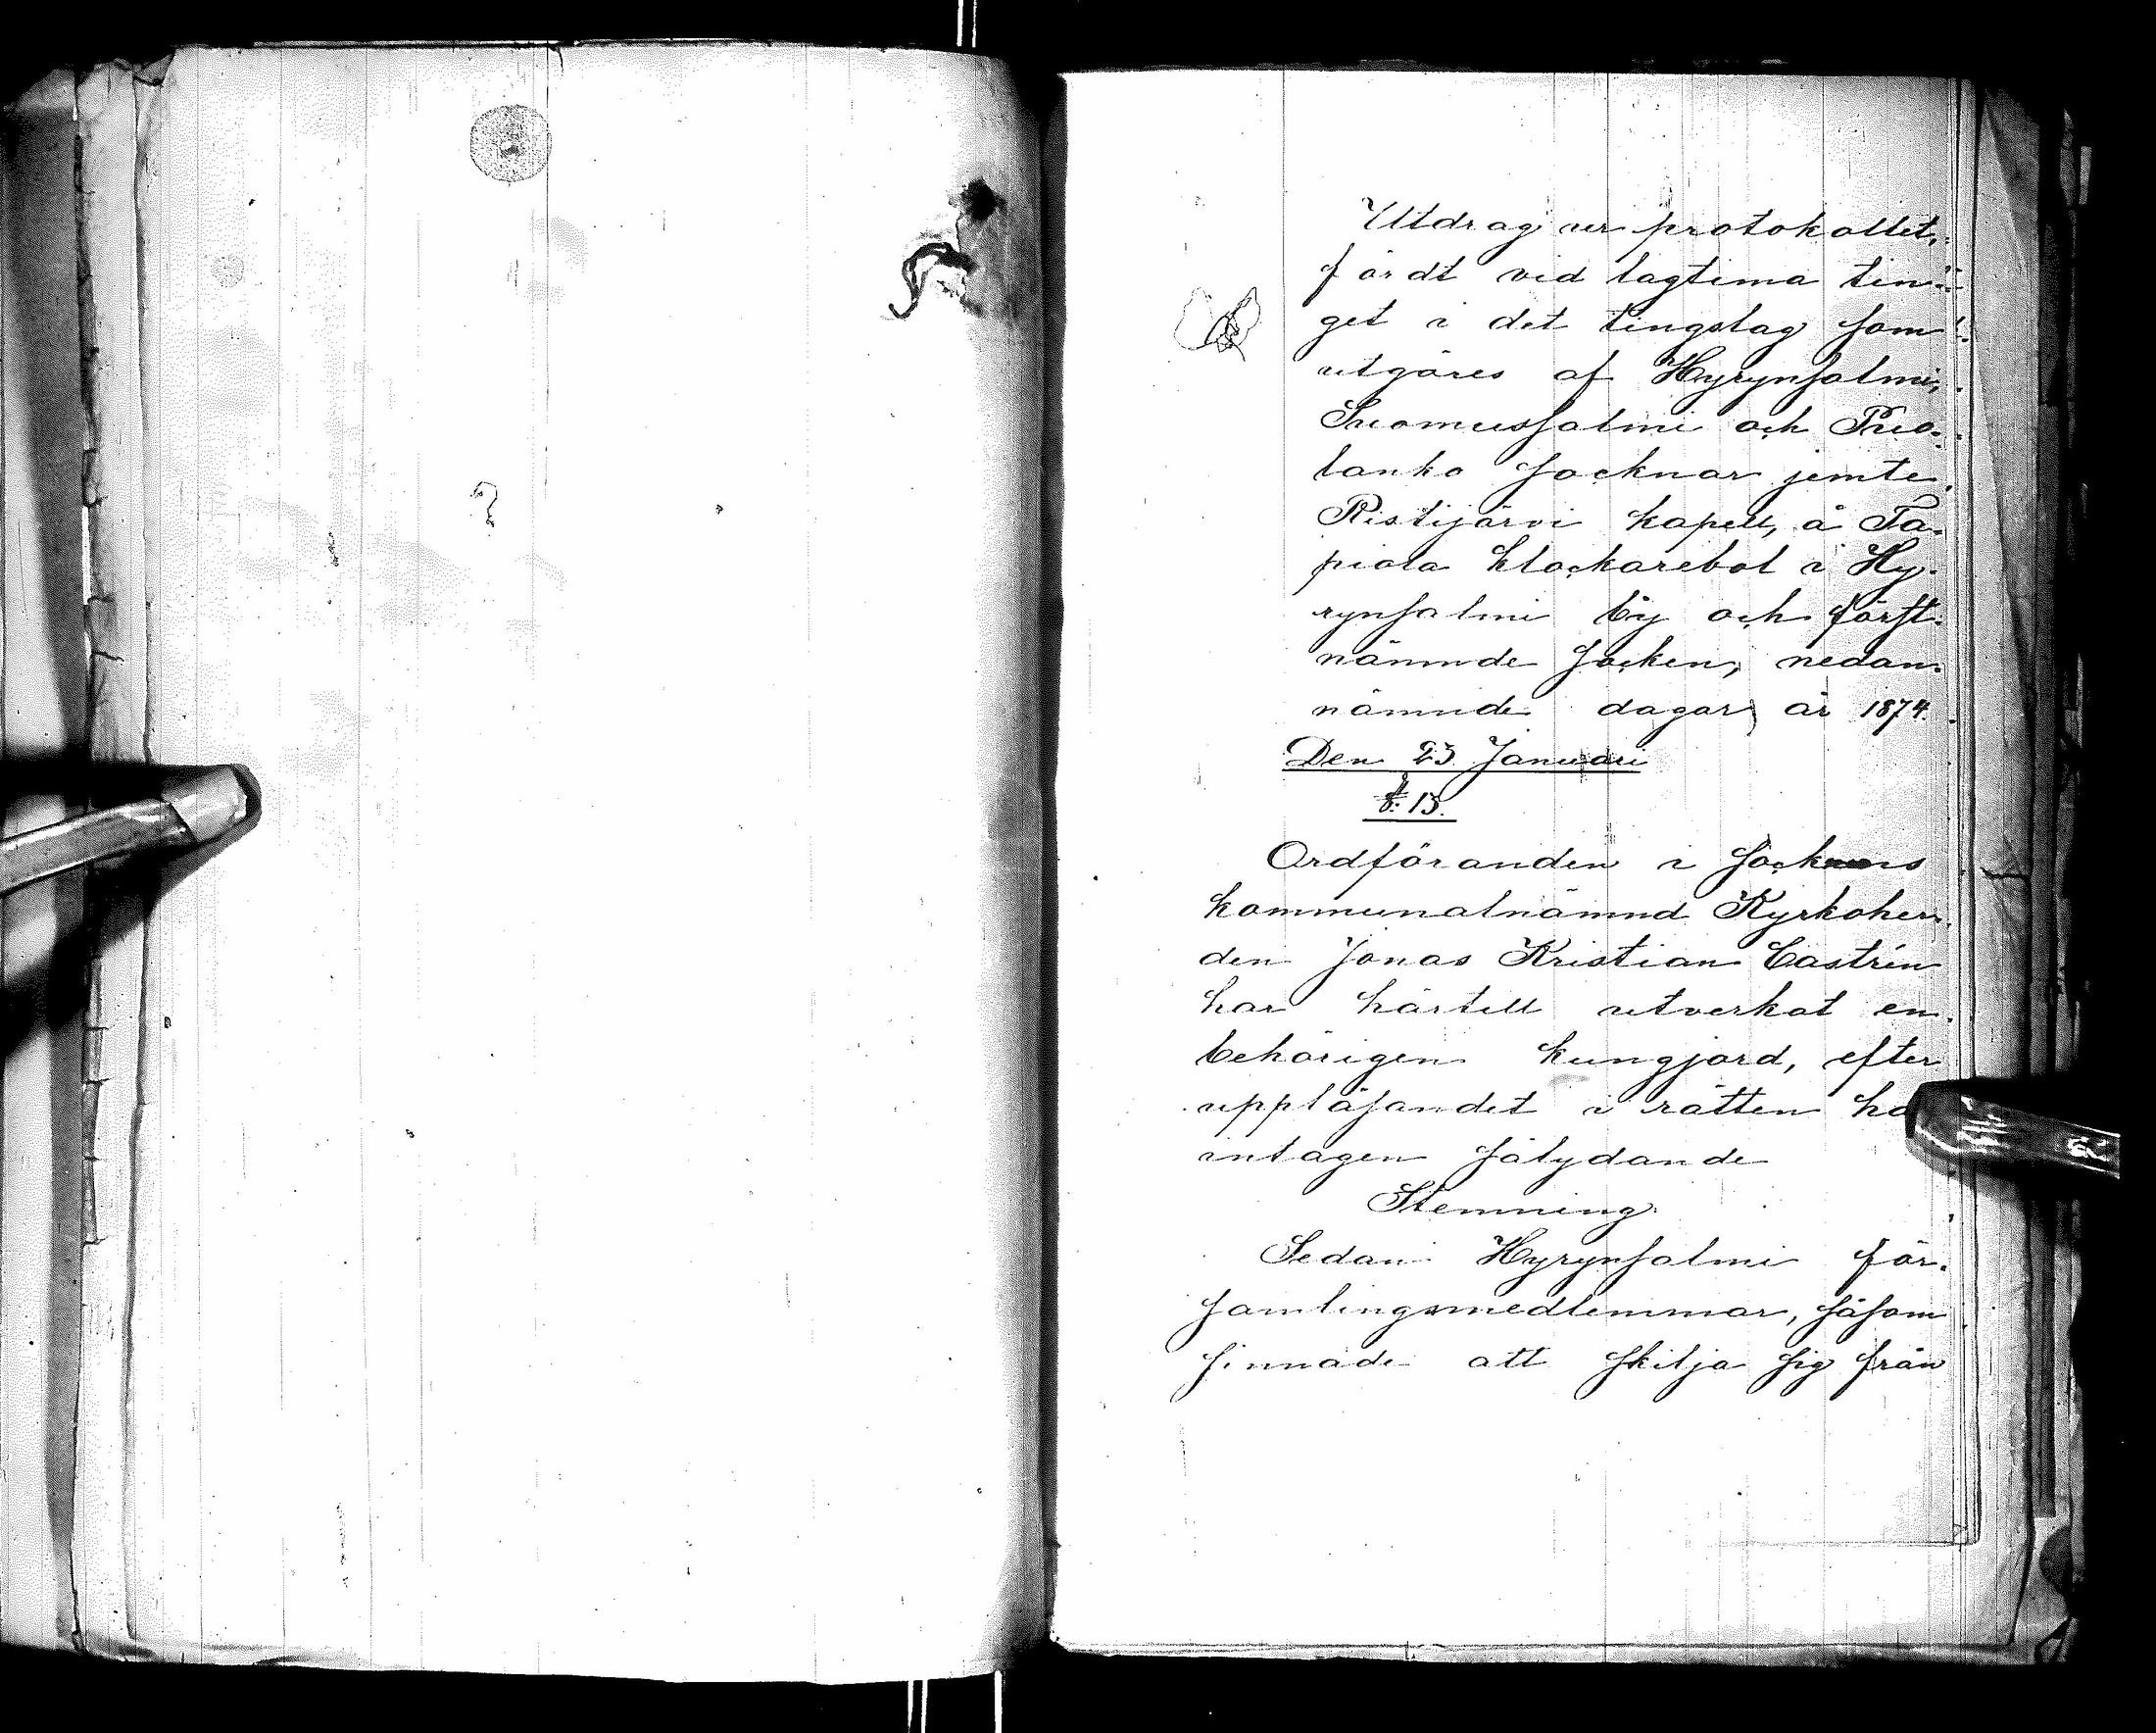 Utdrag ur protokollet,
fördt vid lagtima tin-
get i det tingslag som
utgöres af Hyrynsalmi,
Suomussalmi och Puo-
lanko socknar jemte
Ristijärvi kapell, å Ta-
piola klockarebol i Hy-
rynsalmi by och först-
nämnde socken, nedan-
nämnde dagar år 1874.
Den 23 Januari
§. 15.
Ordföranden i sockens
kommunalnämnd Kyrkoher-
den Jonas Kristian Castrén
har härtill utverkat en
behörigen kungjord, efter
uppläsandet i rätten hä
intagen sålydande
Stemning
Sedan Hyrynsalmi för-
samlingsmedlemmar, såsom
sinnade att skilja sig från